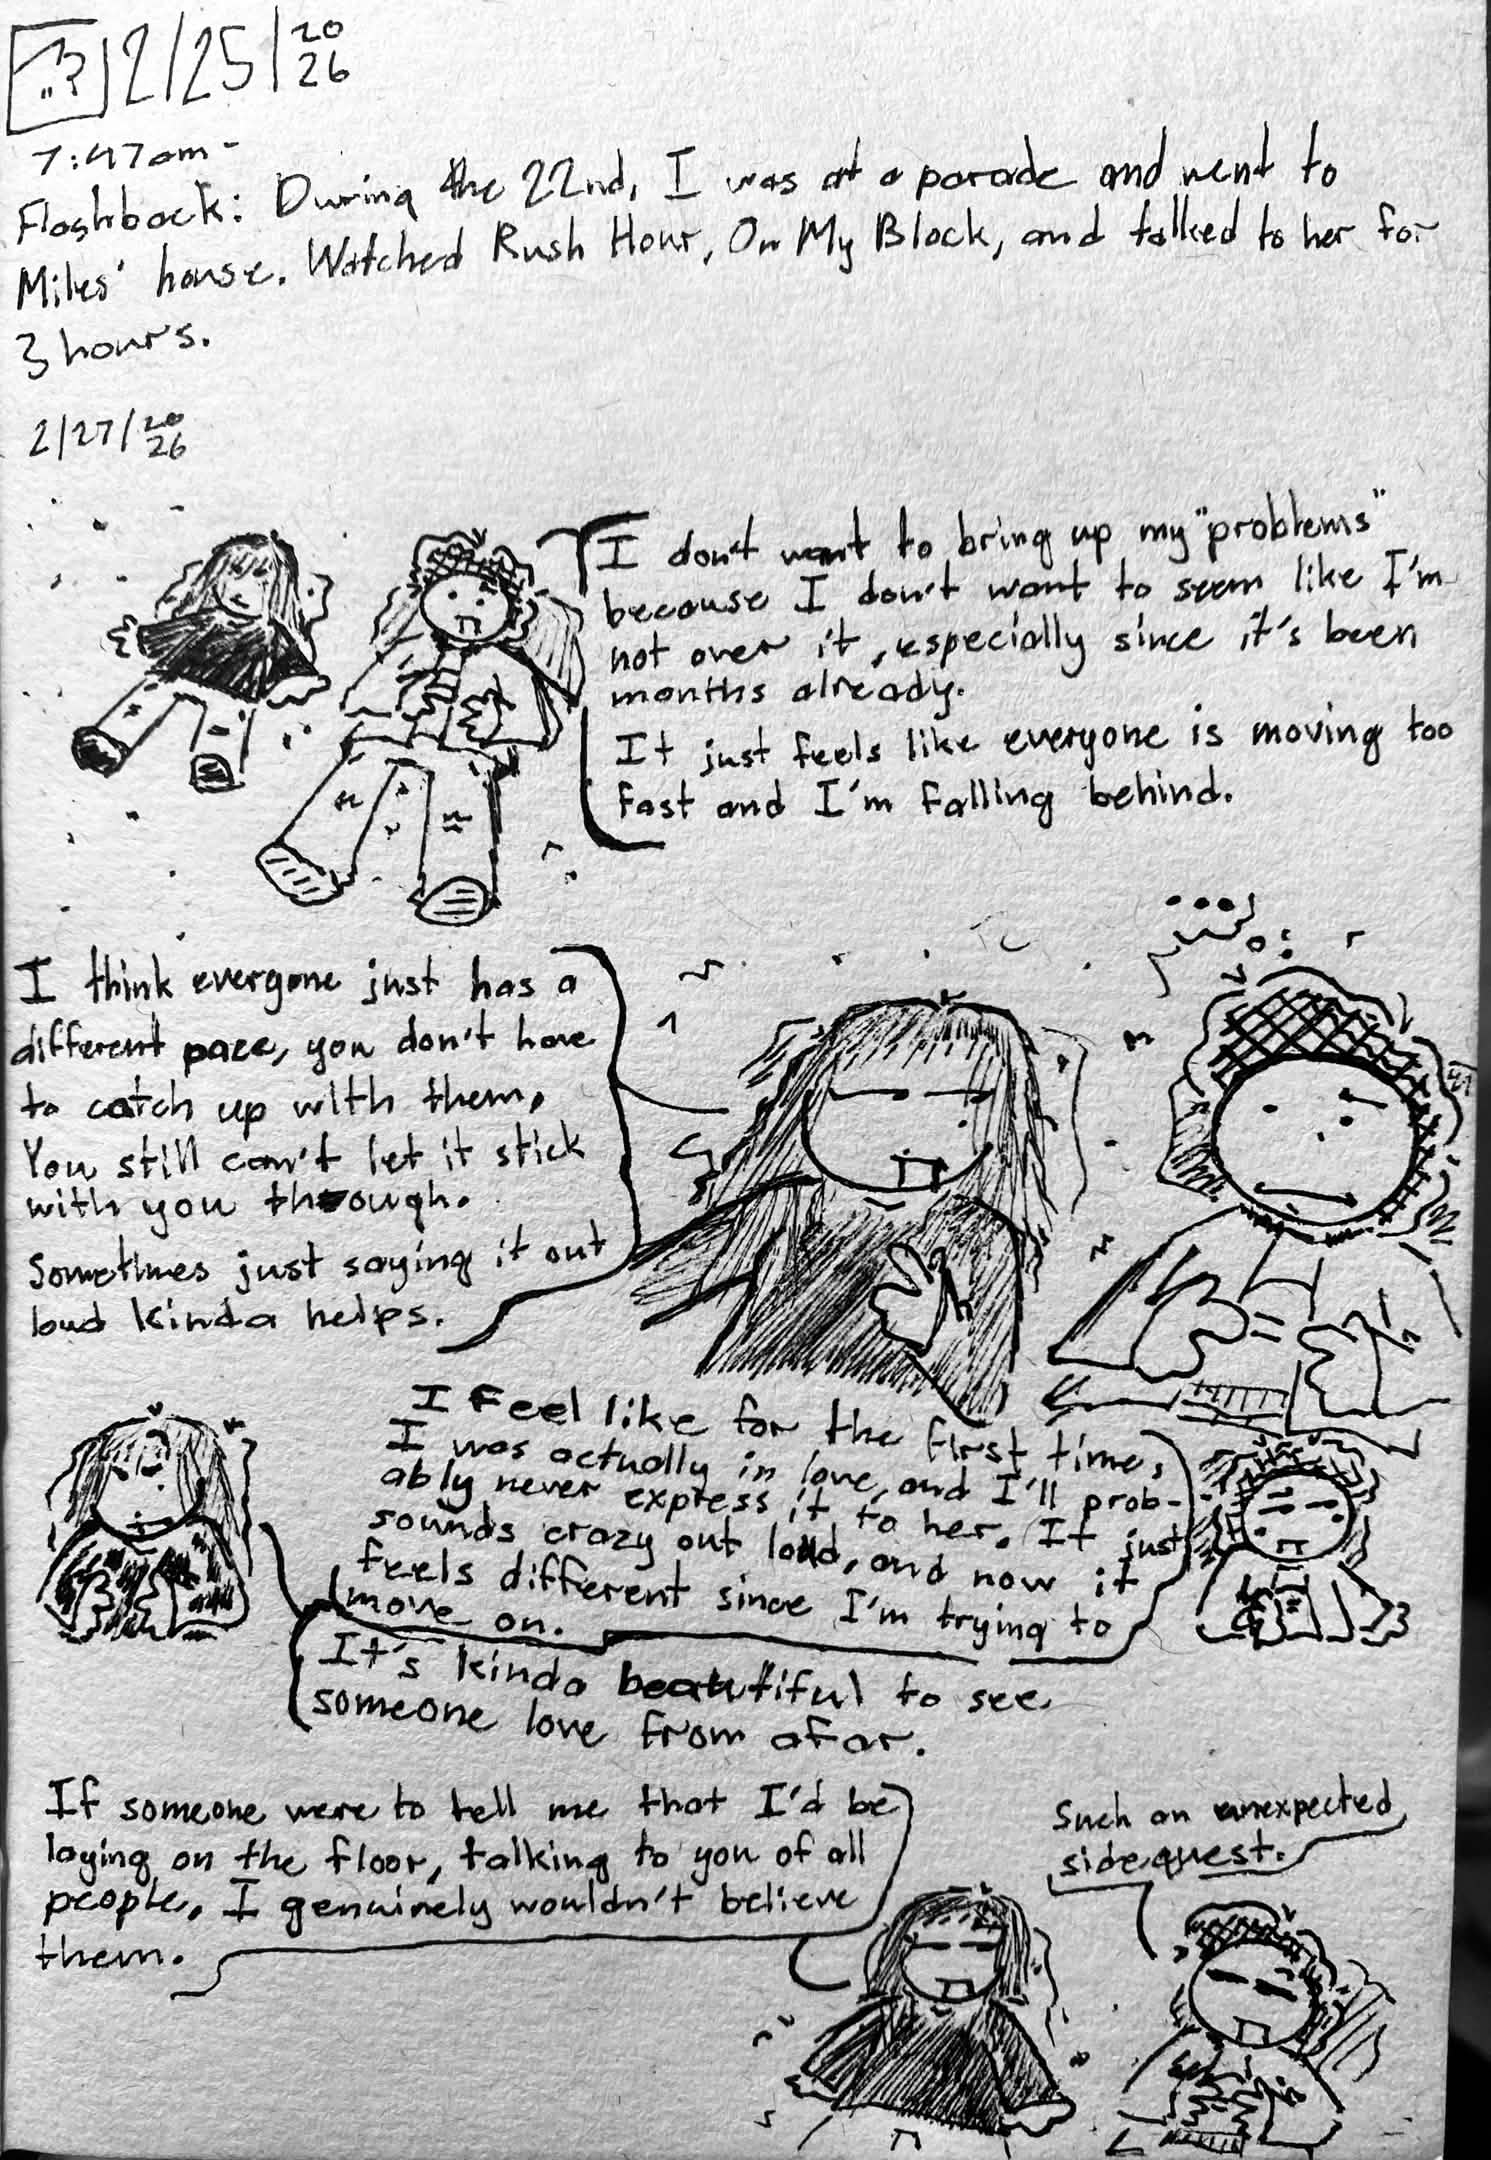 2/25/2026
7:47am-
Flashback: During the 22nd, I was at a parade and went to
Miles' house. Watched Rush Hour, On My Block, and talked to her for
3 hours.
2/27/2026
I don't want to bring up my "problems"
because I don't want to seem like I'm
not over it, especially since it's been
months already.
It just feels like everyone is moving too
fast and I'm falling behind.
...
I think everyone just has a
different pace, you don't have
to catch up with them.
You still can't let it stick
with you through.
Sometimes just saying it out
loud kinda helps.
I feel like for the first time,
I was actually in love, and I'll prob-
ably never express it to her. It just
sounds crazy out loud, and now it
feels different since I'm trying to
move on.
It's kinda beautiful to see
someone love from afar.
If someone were to tell me that I'd be
laying on the floor, talking to you of all
people, I genuinely wouldn't believe
them.
Such an unexpected
sidequest.